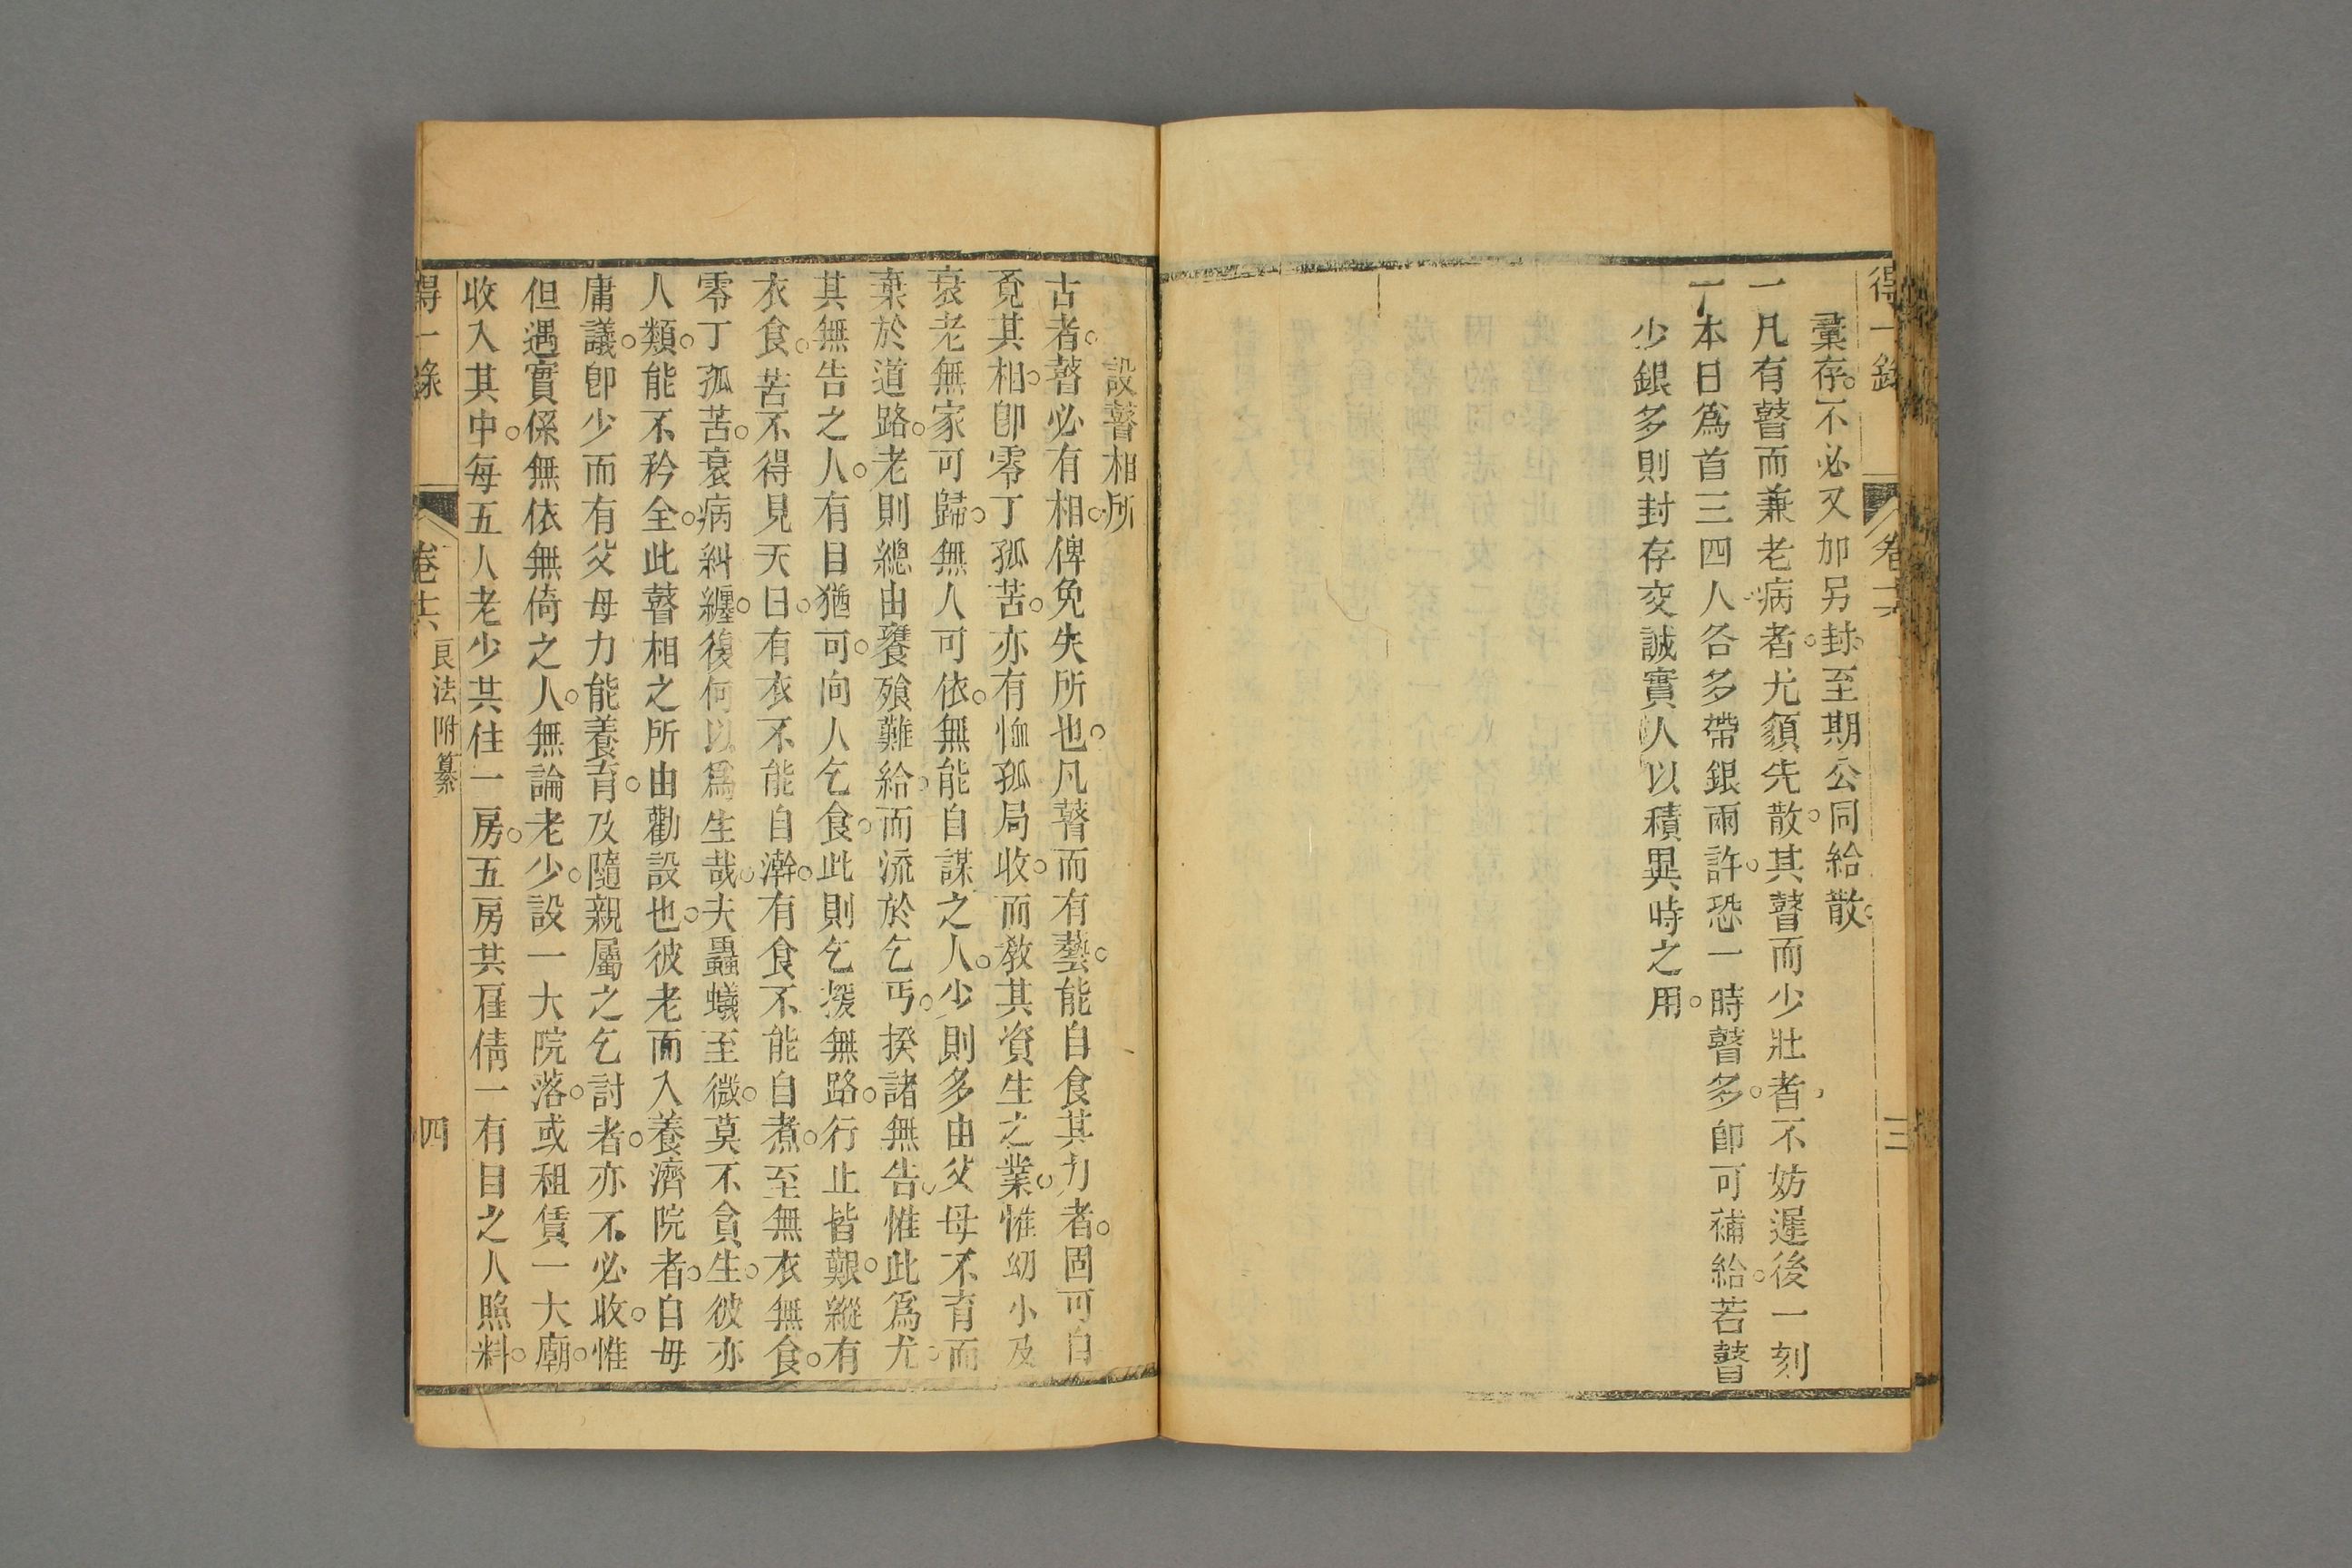 得一錄
卷十六
三
彙存。不必又加另封。至期公同給散。
一凡有瞽而兼老病者。尤須先散。其瞽而少壯者、不妨遲後一刻
一本日爲首三四人各多帶銀兩許。恐一時瞽多。卽可補給。若瞽
少銀多則封存交誠實人以積異時之用。
設瞽相所
古者。瞽必有相。俾免失所也。凡瞽而有藝。能自食其力者。固可自
覔其相。卽零丁孤苦。亦有恤孤局收。而敎其資生之業。惟幼小及
衰老無家可歸。無人可依。無能自謀之人。少則多由父母不育而
棄於道路。老則總由饔飱難給。而流於乞丐。揆諸無告。惟此爲尤。
其無告之人。有目猶可。向人乞食。此則乞援無路。行止皆艱。縱有
衣食。苦不得見天日。有衣不能自澣。有食不能自煮。至無衣無食。
零丁孤苦。衰病糾纏。復何以爲生哉。夫蟲蟻至微。莫不貪生。彼亦
人類。能不矜全。此瞽相之所由勸設也。彼老而入養濟院者。自毋
庸議。卽少而有父母力能養育。及隨親屬之乞討者。亦不必收。惟
但遇實係無依無倚之人。無論老少。設一大院落。或租賃一大廟。
收入其中。每五人老少共住一房。五房共雇倩一有目之人照料。
得一錄
卷十六
良法附纂
四